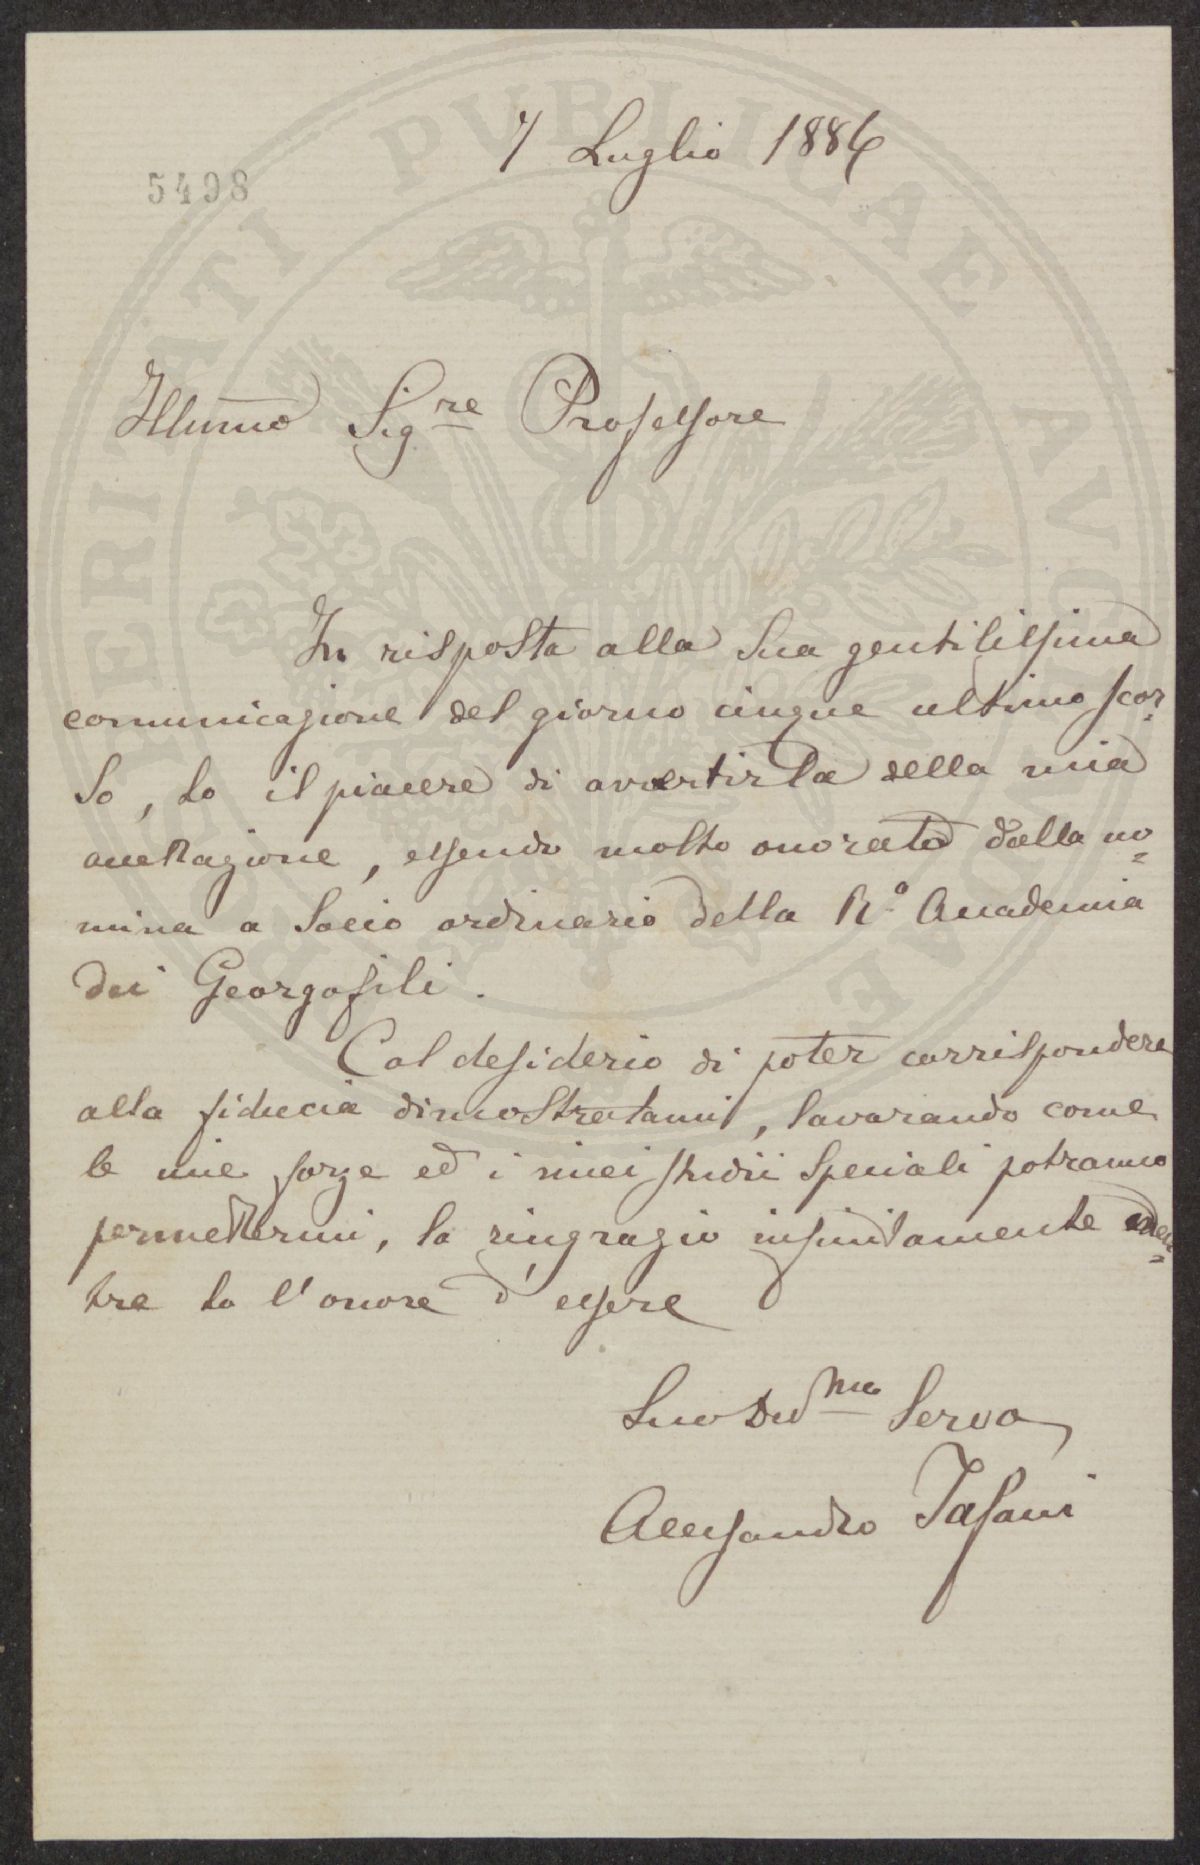 7 Luglio 1886
5498
Illumo Sigre Professore
In risposta alla Sua gentilissima
comunicazione del giorno cinque ultimo scor=
so, ho il piacere di avvertirla della mia
accettazione, essendo molto onorato dalla no=
mina a Socio ordinario della R.a Accademia
dei Georgofili.
Col desiderio di poter corrispondere
alla fiducia dimostratami, lavorando come
le mie forze ed i miei studii speciali potranno
permettermi, la ringrazio infinitamente men=
tre ho l'onore d'essere
Suo Devmo Servo
Alessandro Tafani
PROSPERITATI PUBLICAE AUGENDAE